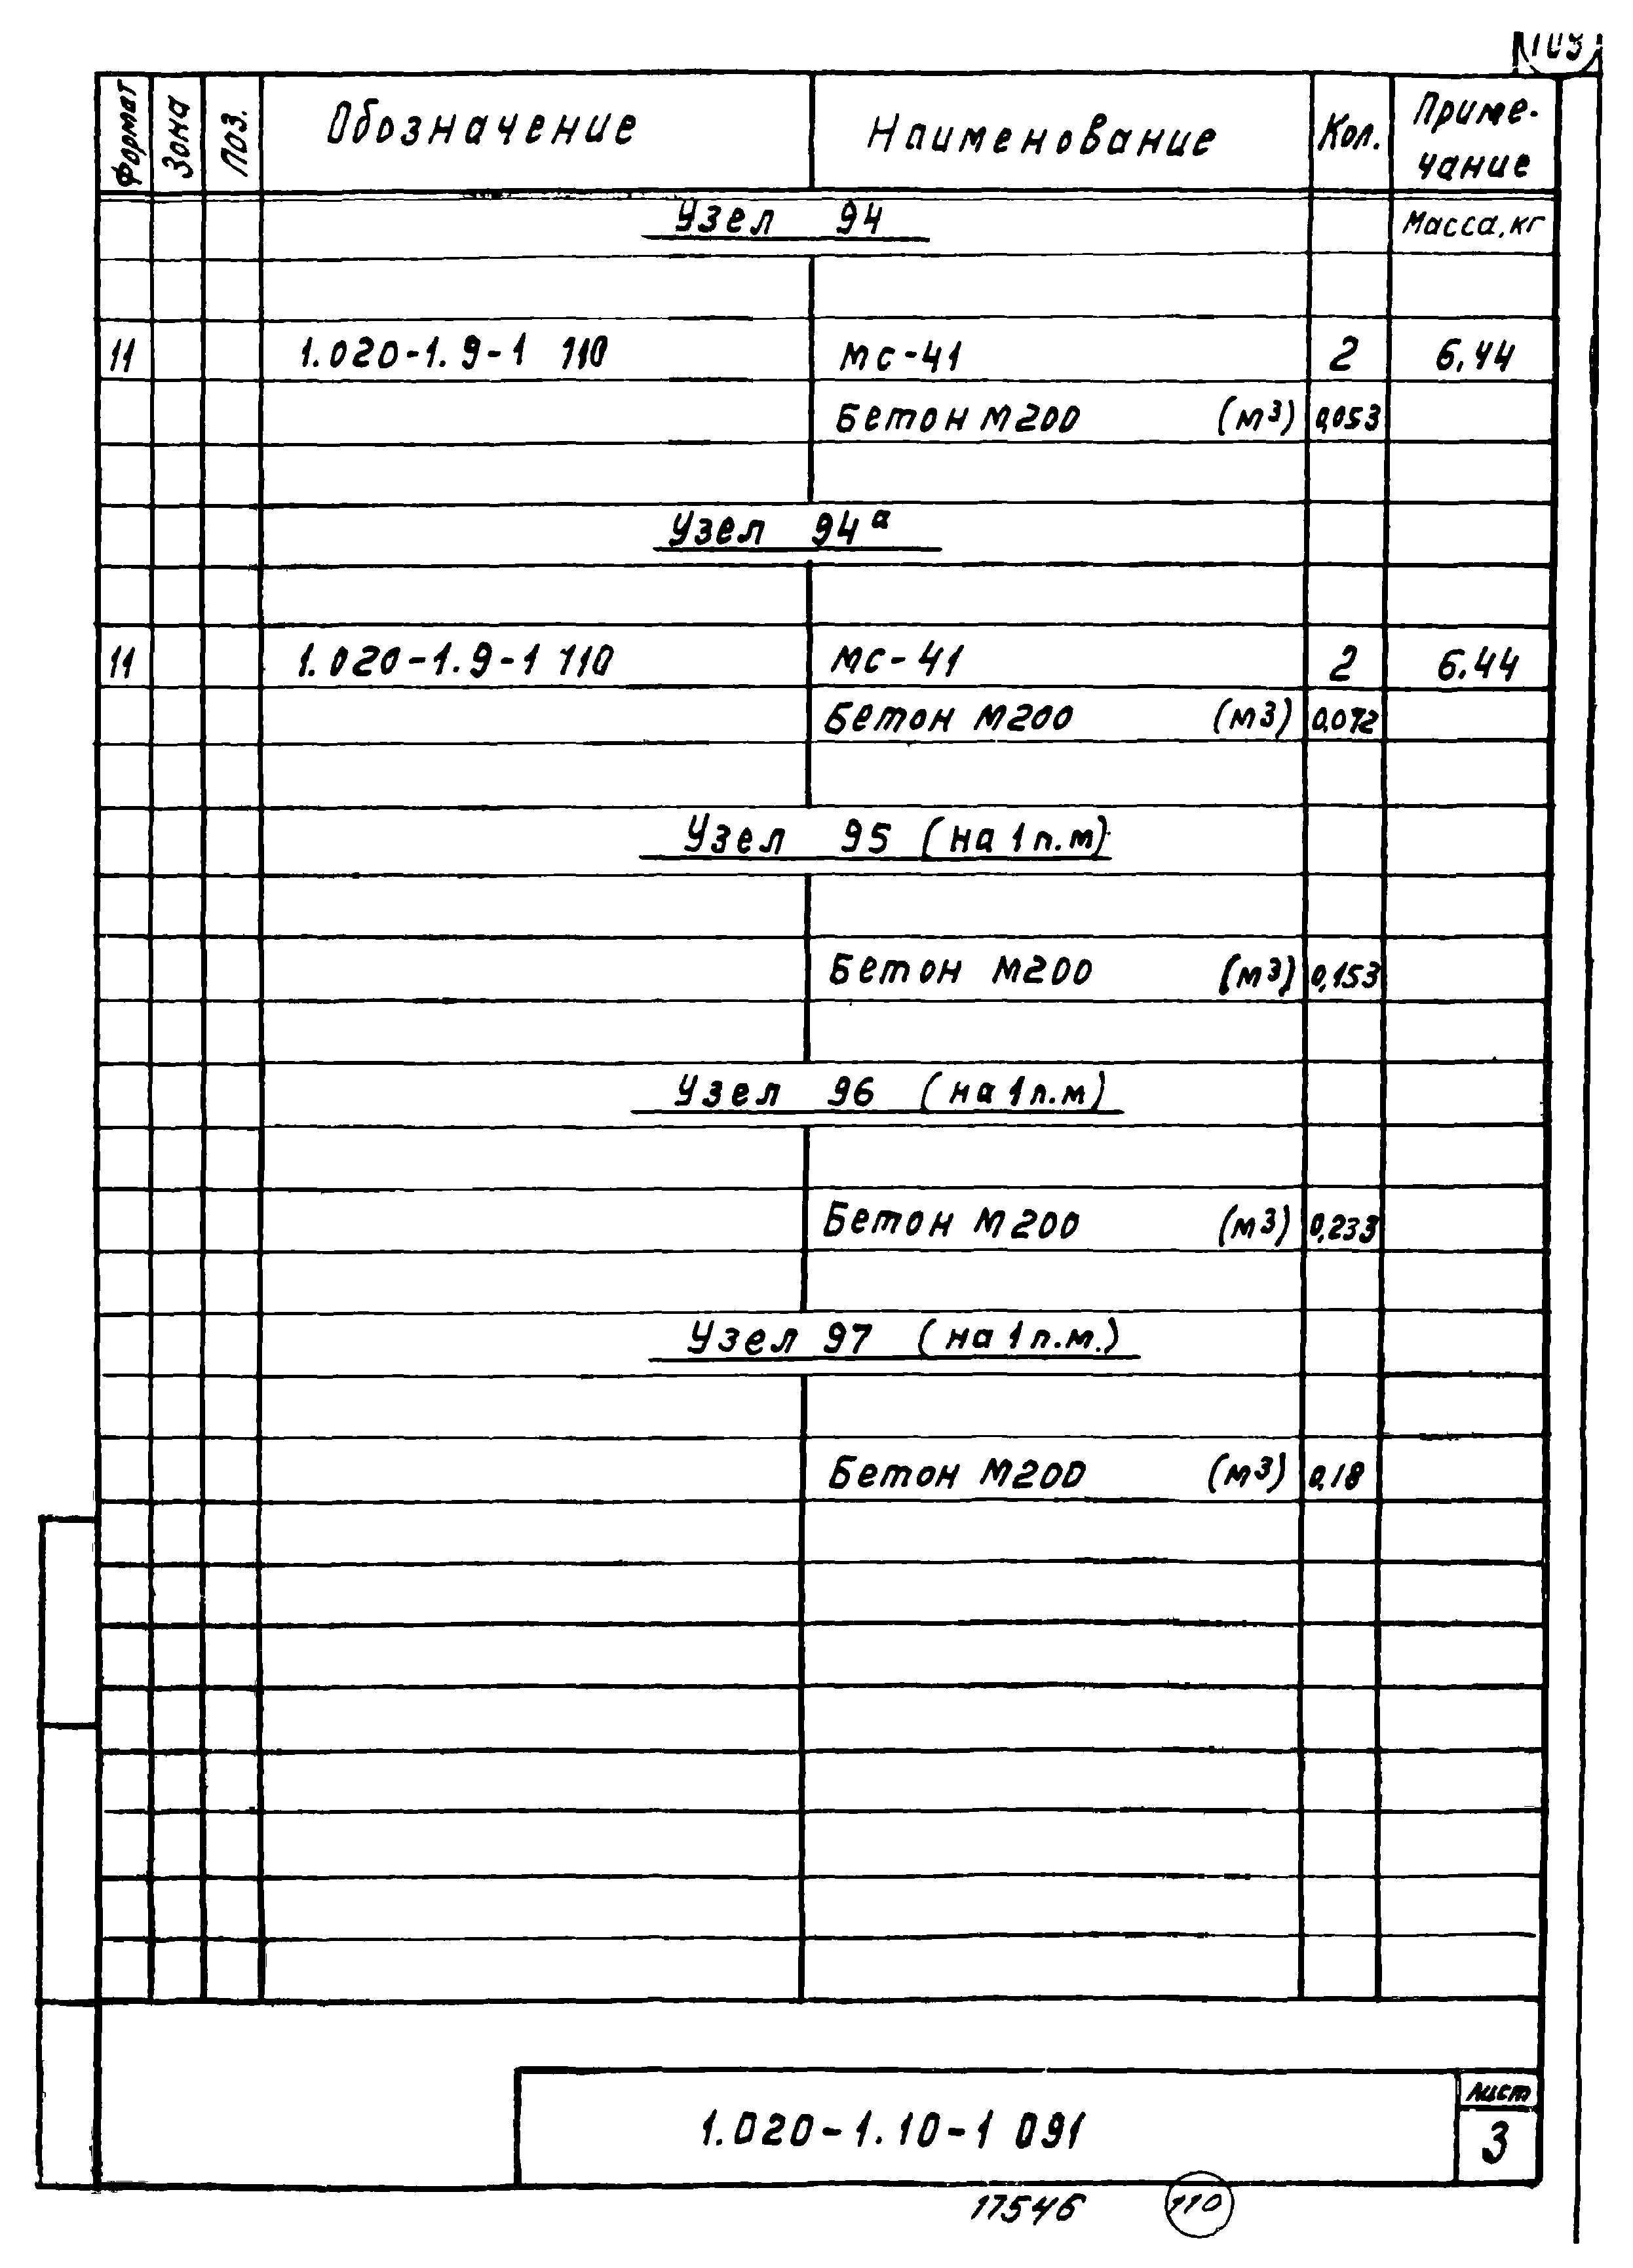 109
Формат Зона Поз. Обозначение Наименование Кол. Приме-
чание
Узел 94 Масса, кг
11 1.020-1.9-1 110 МС-41 2 6.44
Бетон М200 (м3) 0,053
Узел 94а
11 1.020-1.9-1 110 МС-41 2 6.44
Бетон М200 (м3) 0,072
Узел 95 (на 1 п.м)
Бетон М200 (м3) 0,153
Узел 96 (на 1 п.м)
Бетон М200 (м3) 0,233
Узел 97 (на 1 п.м.)
Бетон М200 (м3) 0,18
1.020-1.10-1 091
Лист
3
17546 110